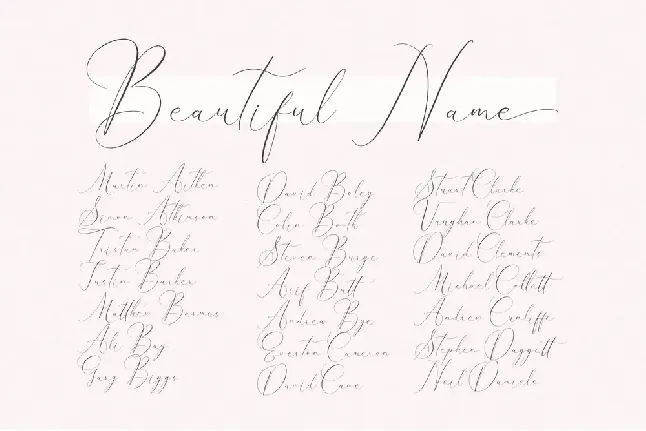 Beautiful Name
Martin Aitken
Simon Atkinson
Tristan Baker
Justin Barker
Matthew Barnes
Ali Bay
Gary Biggs
David Boley
Colin Booth
Steven Burge
Arif Butt
Andrew Bye
Everton Cameron
David Cave
Stuart Clarke
Vaughan Clarke
David Clements
Michael Collett
Andrew Cunliffe
Stephen Daggitt
Neil Daniels